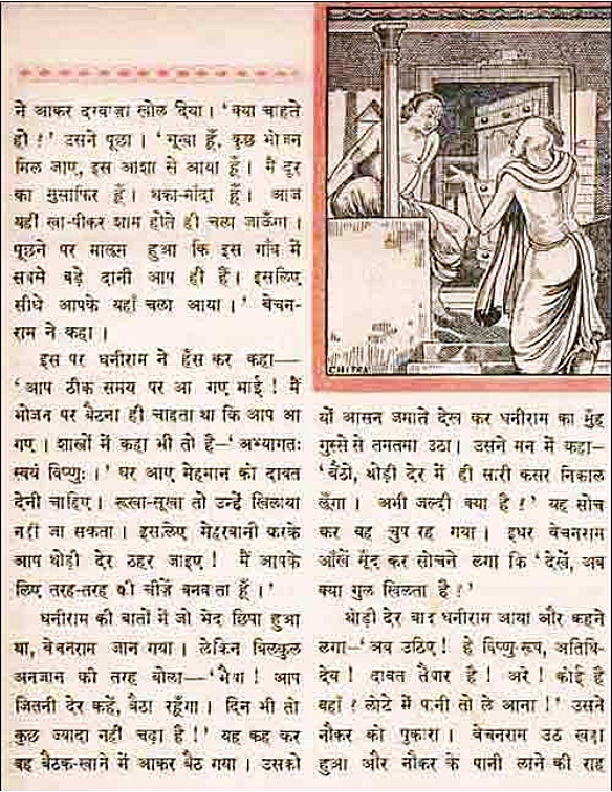 ने आकर दरवाजा खोल दिया । ‘क्या चाहते
हो ?’ उसने पूछा । ‘भूखा हूँ, कुछ भोजन
मिल जाए, इस आशा से आया हूँ । मैं दूर
का मुसाफिर हूँ । थका-माँदा हूँ । आज
यहीं खा-पीकर शाम होते ही चला जाऊँगा ।
पूछने पर मालूम हुआ कि इस गाँव में
सबसे बड़े दानी आप ही हैं । इसलिए
सीधे आपके यहाँ चला आया ।’ बेचन-
राम ने कहा ।
इस पर धनीराम ने हँस कर कहा—
‘आप ठीक समय पर आ गए भाई ! मैं
भोजन पर बैठना ही चाहता था कि आप आ
गए । शास्त्रों में कहा भी तो है—‘अभ्यागतः
स्वयं विष्णुः ।’ घर आए मेहमान को दावत
देनी चाहिए । रूखा-सूखा तो उन्हें खिलाया
नहीं जा सकता । इसलिए मेहरबानी करके
आप थोड़ी देर ठहर जाइए ! मैं आपके
लिए तरह-तरह की चीज़ें बनवाता हूँ ।’
धनीराम की बातों में जो भेद छिपा हुआ
था, बेचनराम जान गया । लेकिन बिलकुल
अनजान की तरह बोला—‘भैया ! आप
जितनी देर कहें, बैठा रहूँगा । दिन भी तो
कुछ ज्यादा नहीं चढ़ा है !’ यह कह कर
वह बैठक-खाने में आकर बैठ गया । उसको
CHITRA
यों आसन जमाते देख कर धनीराम का मुँह
गुस्से से तमतमा उठा । उसने मन में कहा—
‘बैठो, थोड़ी देर में ही सारी कसर निकाल
लूँगा । अभी जल्दी क्या है !’ यह सोच
कर वह चुप रह गया । इधर बेचनराम
आँखें मूँद कर सोचने लगा कि ‘देखें, अब
क्या गुल खिलता है ?’
थोड़ी देर बाद धनीराम आया और कहने
लगा—‘अब उठिए ! हे विष्णु-रूप, अतिथि-
देव ! दावत तैयार है ! अरे ! कोई है
वहाँ ? लोटे में पानी तो ले आना !’ उसने
नौकर को पुकारा । बेचनराम उठ खड़ा
हुआ और नौकर के पानी लाने की राह